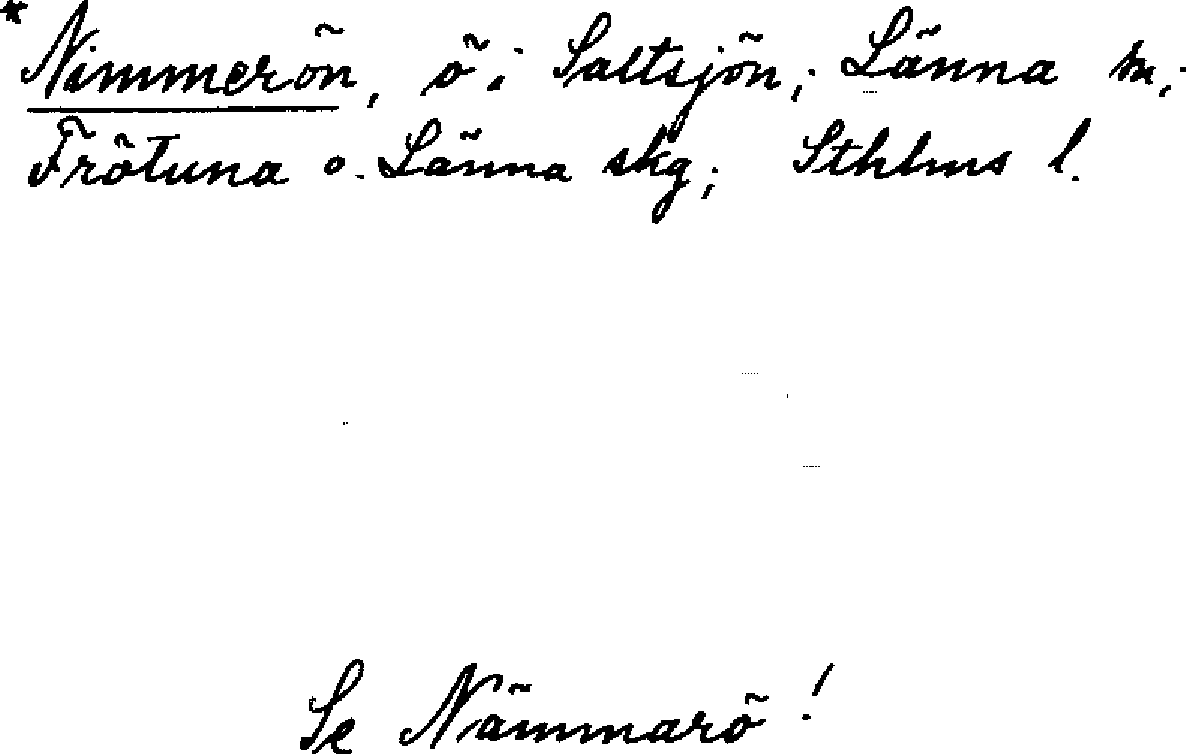 * Nimmerön, ö i Saltsjön; Länna sn;
Frötuna o. Länna skg; Sthlms l.
Se Nämmarö!